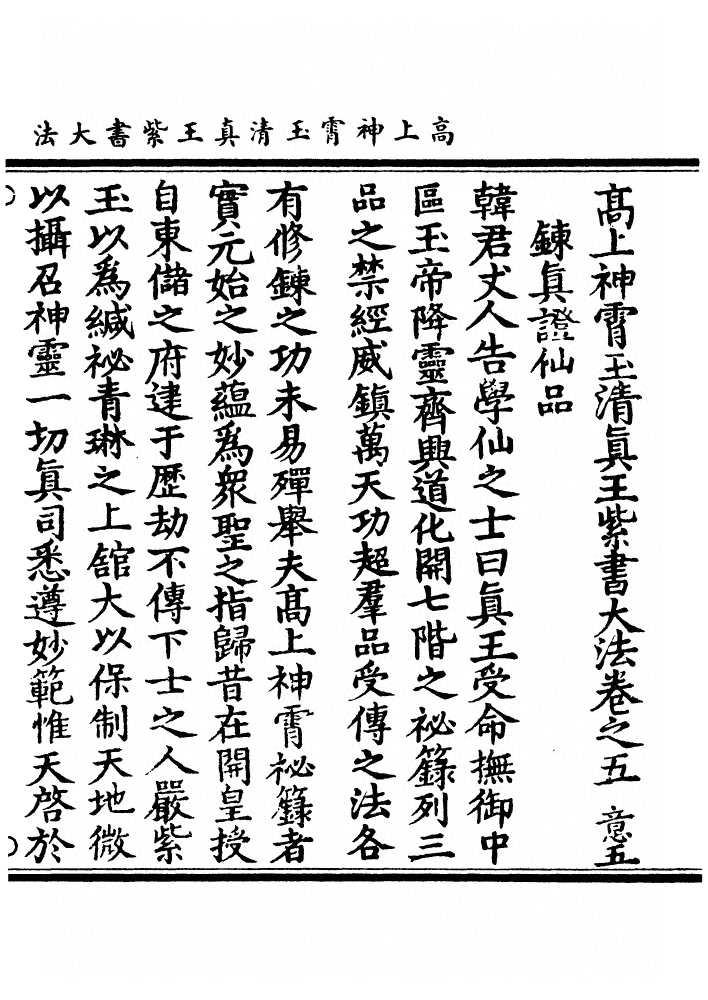 高上神霄玉清真王紫書大法
髙上神霄玉清眞王紫書大法卷之五 意五
鍊眞證仙品
韓君丈人告學仙之士曰眞王受命撫御中
區玉帝降靈齊興道化開七階之祕籙列三
品之禁經威鎮萬天功超羣品受傳之法各
有修鍊之功未易殫舉夫髙上神霄祕籙者
實元始之妙蘊爲衆聖之指歸昔在開皇授
自東儲之府逮于歷劫不傳下士之人嚴紫
玉以爲緘祕青琳之上舘大以保制天地微
以攝召神靈一切眞司悉遵妙範惟天啓於